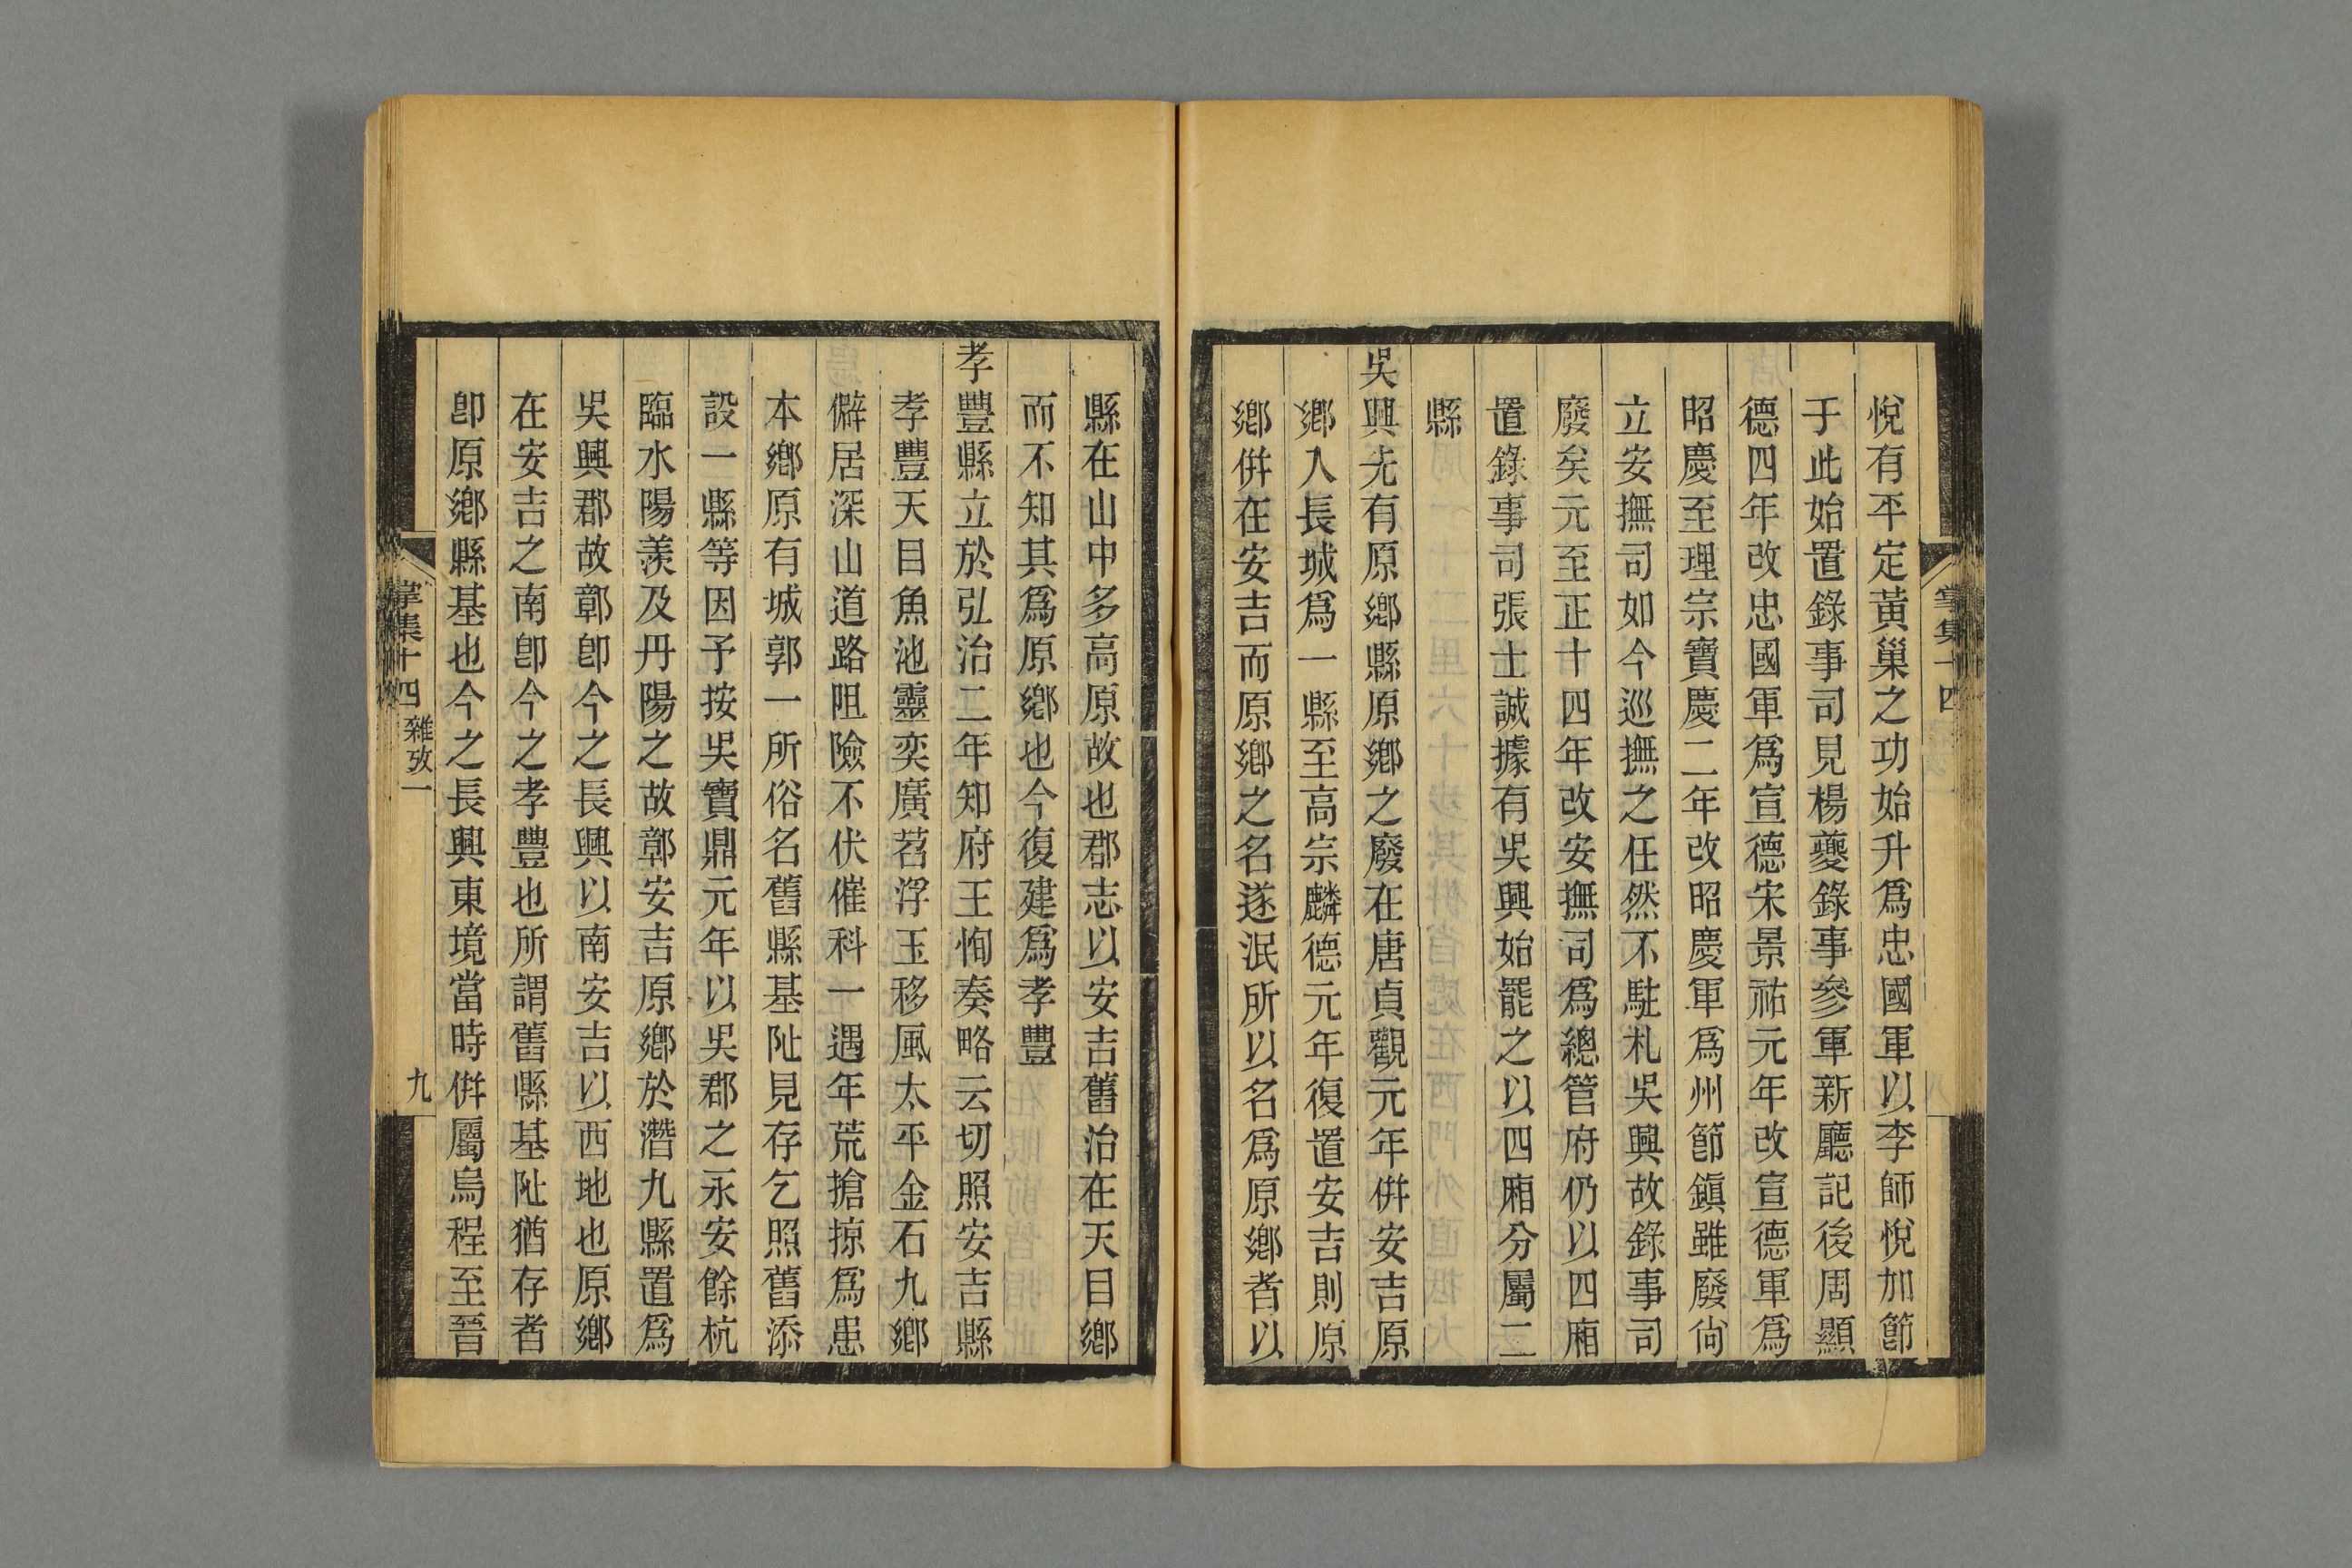 悅有平定黃巢之功始升爲忠國軍以李師悅加節
于此始置錄事司見楊夔錄事參軍新廳記後周顯
德四年改忠國軍爲宣德宋景祐元年改宣德軍爲
昭慶至理宗寶慶二年改昭慶軍爲州節鎭雖廢尙
立安撫司如今巡撫之任然不駐札吳興故錄事司
廢矣元至正十四年改安撫司爲總管府仍以四廂
置錄事司張士誠據有吳興始罷之以四廂分屬二
縣
吳興先有原鄕縣原鄕之廢在唐貞觀元年倂安吉原
鄕入長城爲一縣至高宗麟德元年復置安吉則原
鄕倂在安吉而原鄕之名遂泯所以名爲原鄕者以
縣在山中多高原故也郡志以安吉舊治在天目鄕
而不知其爲原鄕也今復建爲孝豐
孝豐縣立於弘治二年知府王恂奏略云切照安吉縣
孝豐天目魚池靈奕廣苕浮玉移風太平金石九鄕
僻居深山道路阻險不伏催科一遇年荒搶掠爲患
本鄕原有城郭一所俗名舊縣基阯見存乞照舊添
設一縣等因予按吳寶鼎元年以吳郡之永安餘杭
臨水陽羨及丹陽之故鄣安吉原鄕於潛九縣置爲
吳興郡故鄣卽今之長興以南安吉以西地也原鄕
在安吉之南卽今之孝豐也所謂舊縣基阯猶存者
卽原鄕縣基也今之長興東境當時倂屬烏程至晉
掌集十四 雜攷一 九